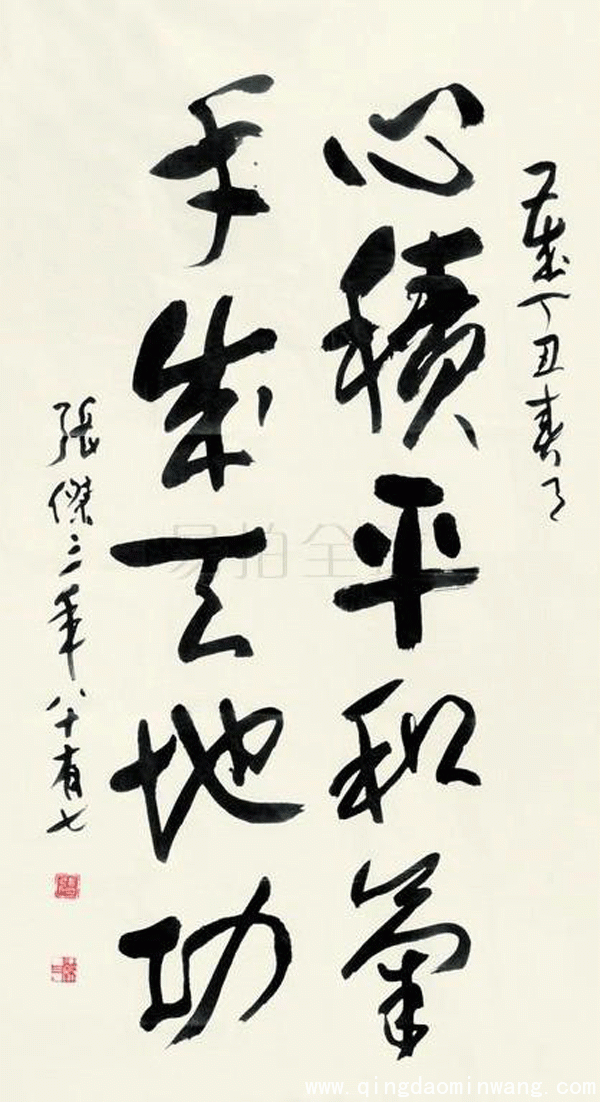 又歲丁丑春月
心積平和氣
手成天地功
張傑三年八十有七
易拍全球
www.qingdaominwang.com